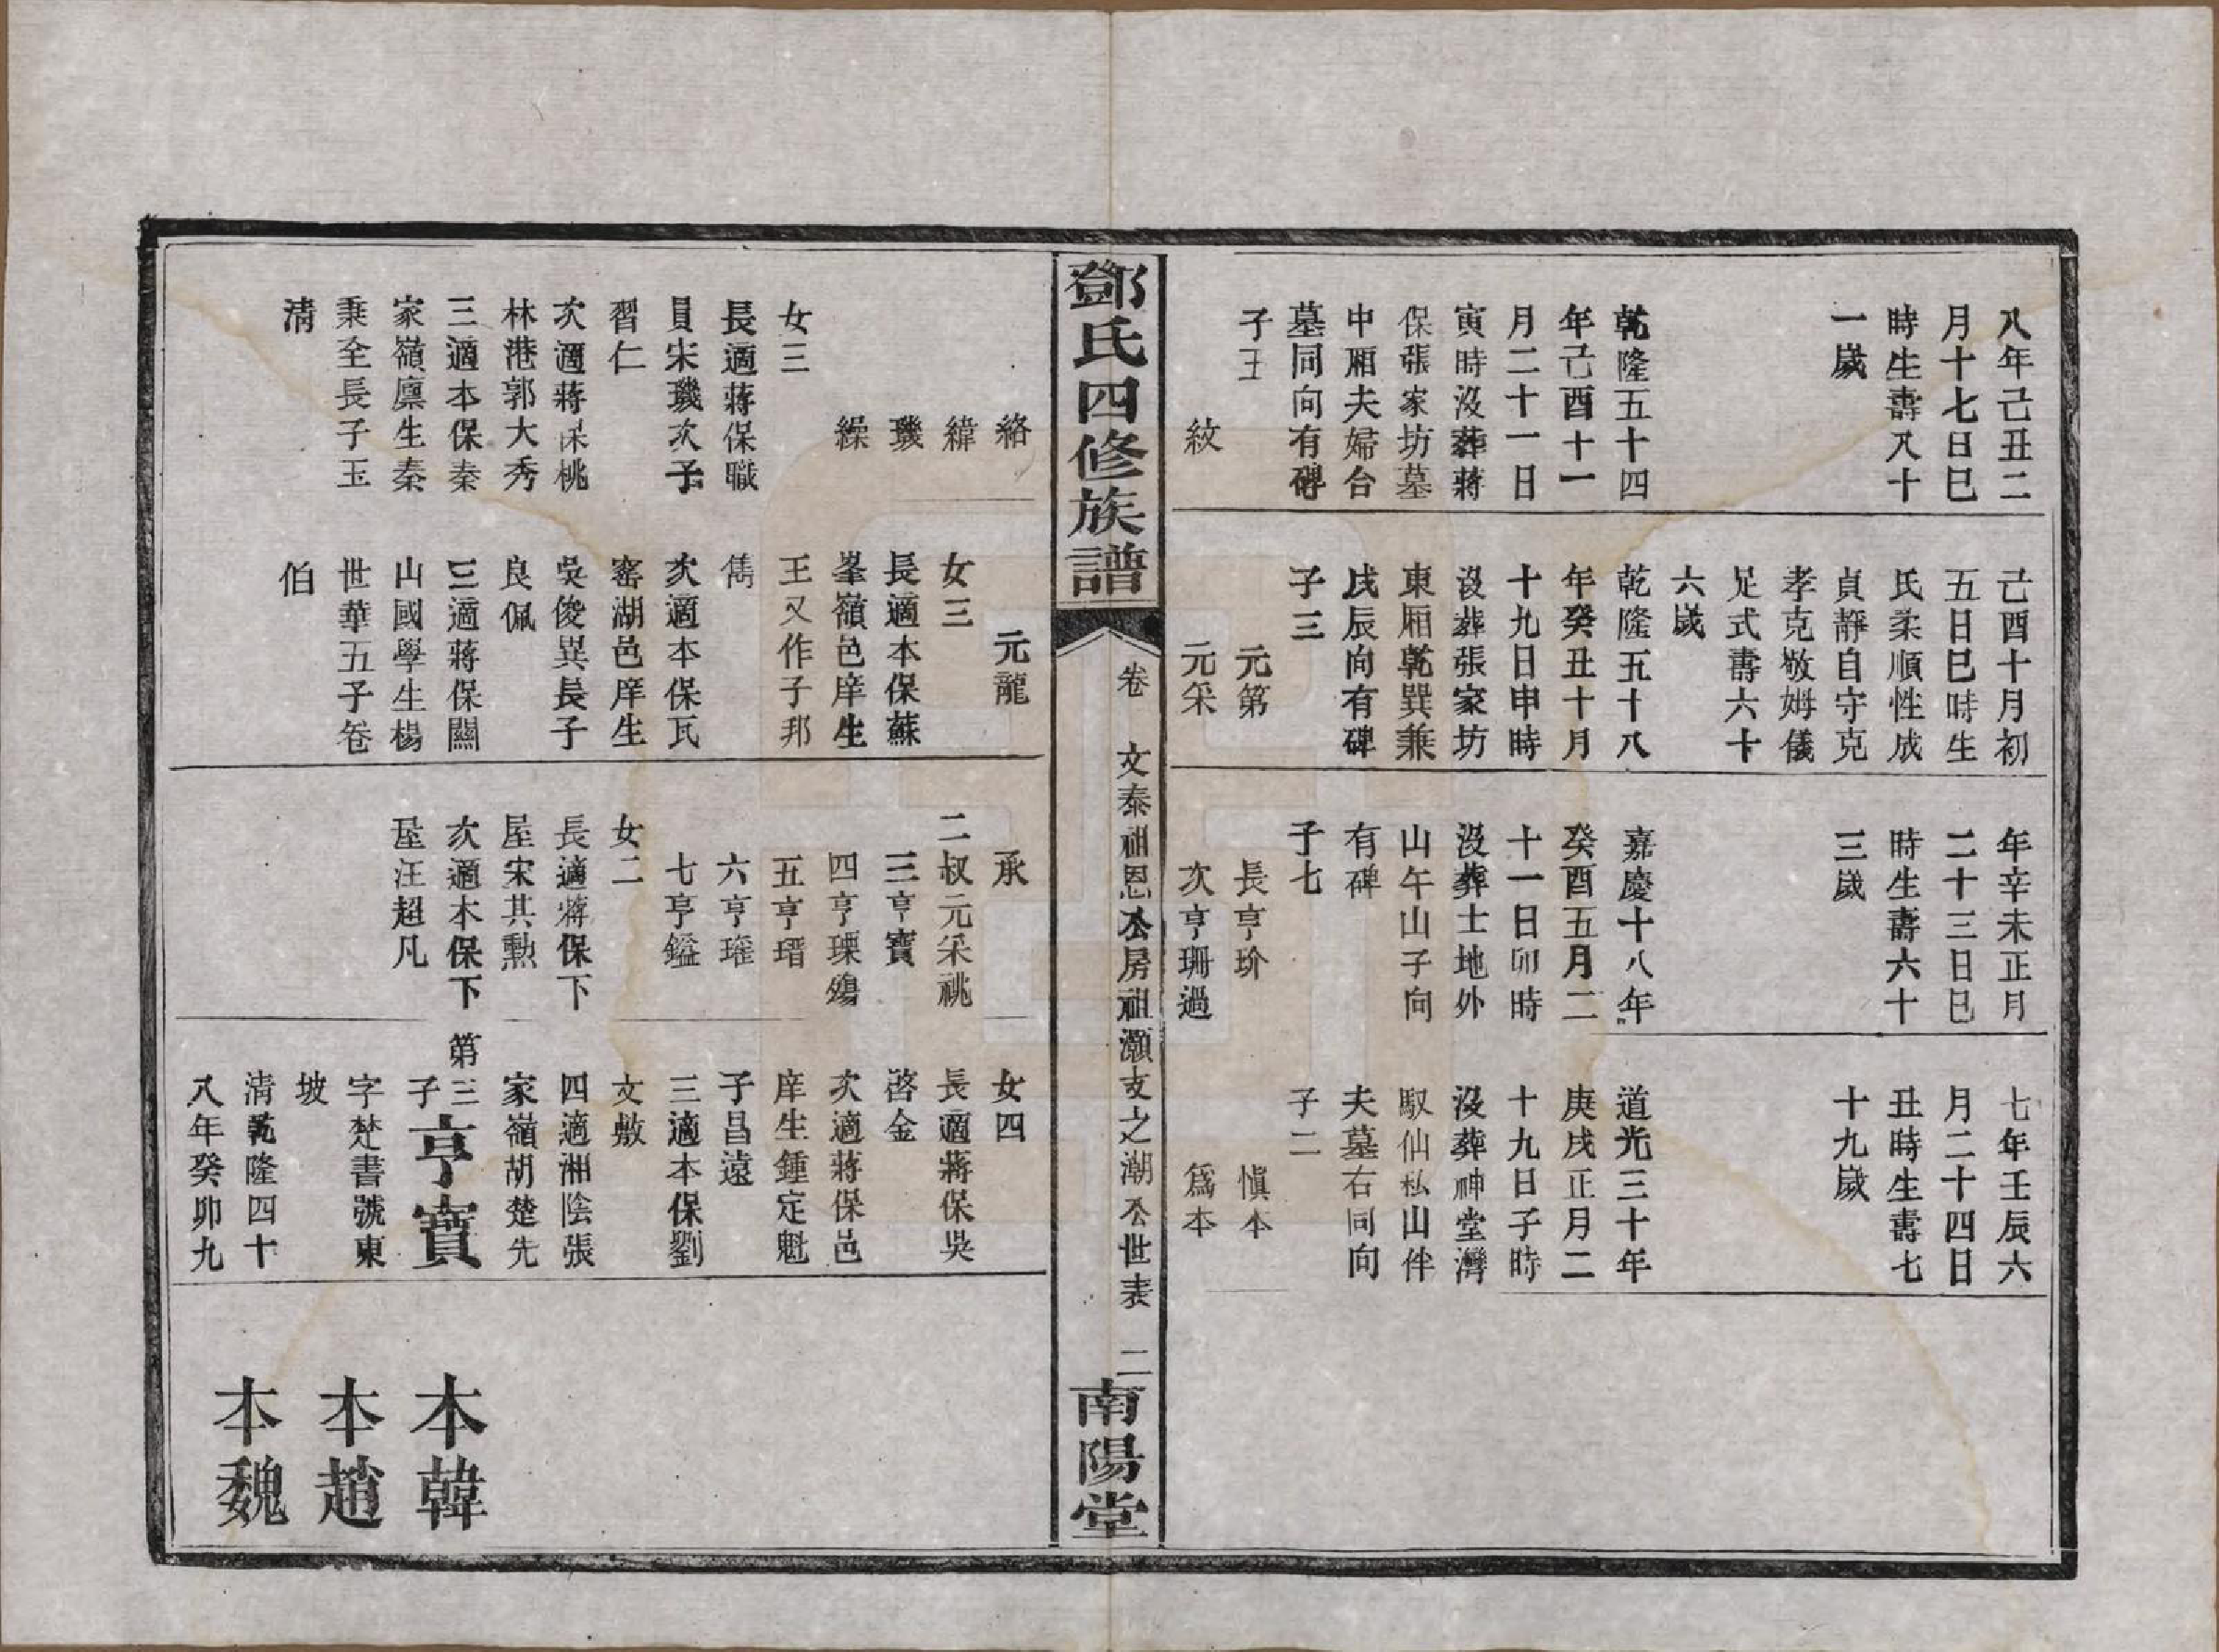 八年己丑二
月十七日巳
時生壽八十
一嵗
乾隆五十四
年己酉十一
月二十一日
寅時沒葬蔣
保張家坊墓
中厢夫婦合
墓同向有碑
子五
紋
己酉十月初
五日巳時生
氏柔順性成
貞靜自守克
孝克敬姆儀
足式壽六十
六嵗
乾隆五十八
年癸丑十月
十九日申時
沒葬張家坊
東厢乾巽兼
戌辰向有碑
子三
元第
元采
年辛未正月
二十三日巳
時生壽六十
三嵗
嘉慶十八年
癸酉五月二
十一日卯時
沒葬土地外
山午山子向
有碑
子七
長亨玠
次亨珊過
七年壬辰六
月二十四日
丑時生壽七
十九嵗
道光三十年
庚戌正月二
十九日子時
沒葬神堂灣
馭仙私山伴
夫墓右同向
子二
慎本
爲本
鄧氏四修族譜
卷
文泰祖恩公房祖灝支之潮公世表
二
南陽堂
絡
緯
璣
繰
女三
長適蔣保職
員宋璣次子
習仁
次適蔣保桃
林港郭大秀
三適本保秦
家嶺廩生秦
秉全長子玉
清
元龍
女三
長適本保蘇
峯嶺邑庠生
王又作子邦
儁
次適本保瓦
窑湖邑庠生
吳俊異長子
良佩
三適蔣保關
山國學生楊
世華五子卷
伯
承
二叔元采祧
三亨寶
四亨瑮殤
五亨瑨
六亨瓘
七亨鎰
女二
長適蔣保下
屋宋其勲
次適本保下
屋汪超凡
女四
長適蔣保吳
啓金
次適蔣保邑
庠生鍾定魁
子昌遠
三適本保劉
文敷
四適湘陰張
家嶺胡楚先
第三子亨寶
字楚書號東
坡
清乾隆四十
八年癸卯九
本韓
本趙
本魏